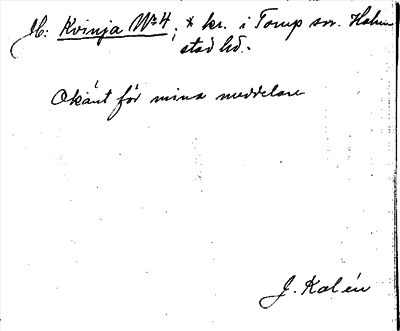 M: Kvinja Nr 4; * kr. i Torup sn. Halm
stad hd.
Okänt för mina meddelare
J. Kalén